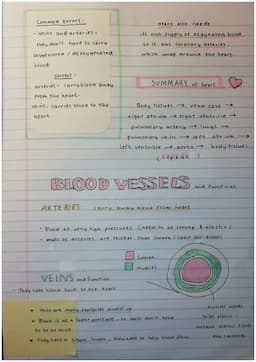 Common errors:
- veins and arteries:
they don't have to carry
oxygenated / deoxygenated
blood
correct:
arteries: carry blood away
from the heart.
veins: carries blood to the
heart.
heart also needs
its own supply of oxygenated blood
so it has coronary arteries.
which wrap around the heart.
SUMMARY of heart
Body tissues → vena cava →
right atrium → right ventricle →
pulmonary artery → lungs →
pulmonary veins → left atrium →
left ventricle → aorta → body tissues
(repeat)
BLOOD VESSELS and functions
ARTERIES carry away blood from heart
- Blood at very high pressures (need to be strong & elastic)
- walls of arteries are thicker than lumen (space for blood)
lumen
muscles
VEINS and function
- They take blood back to the heart.
Blood is at a lower pressure so walls don't need
to be as thick
They have a bigger lumen
to help blood flow